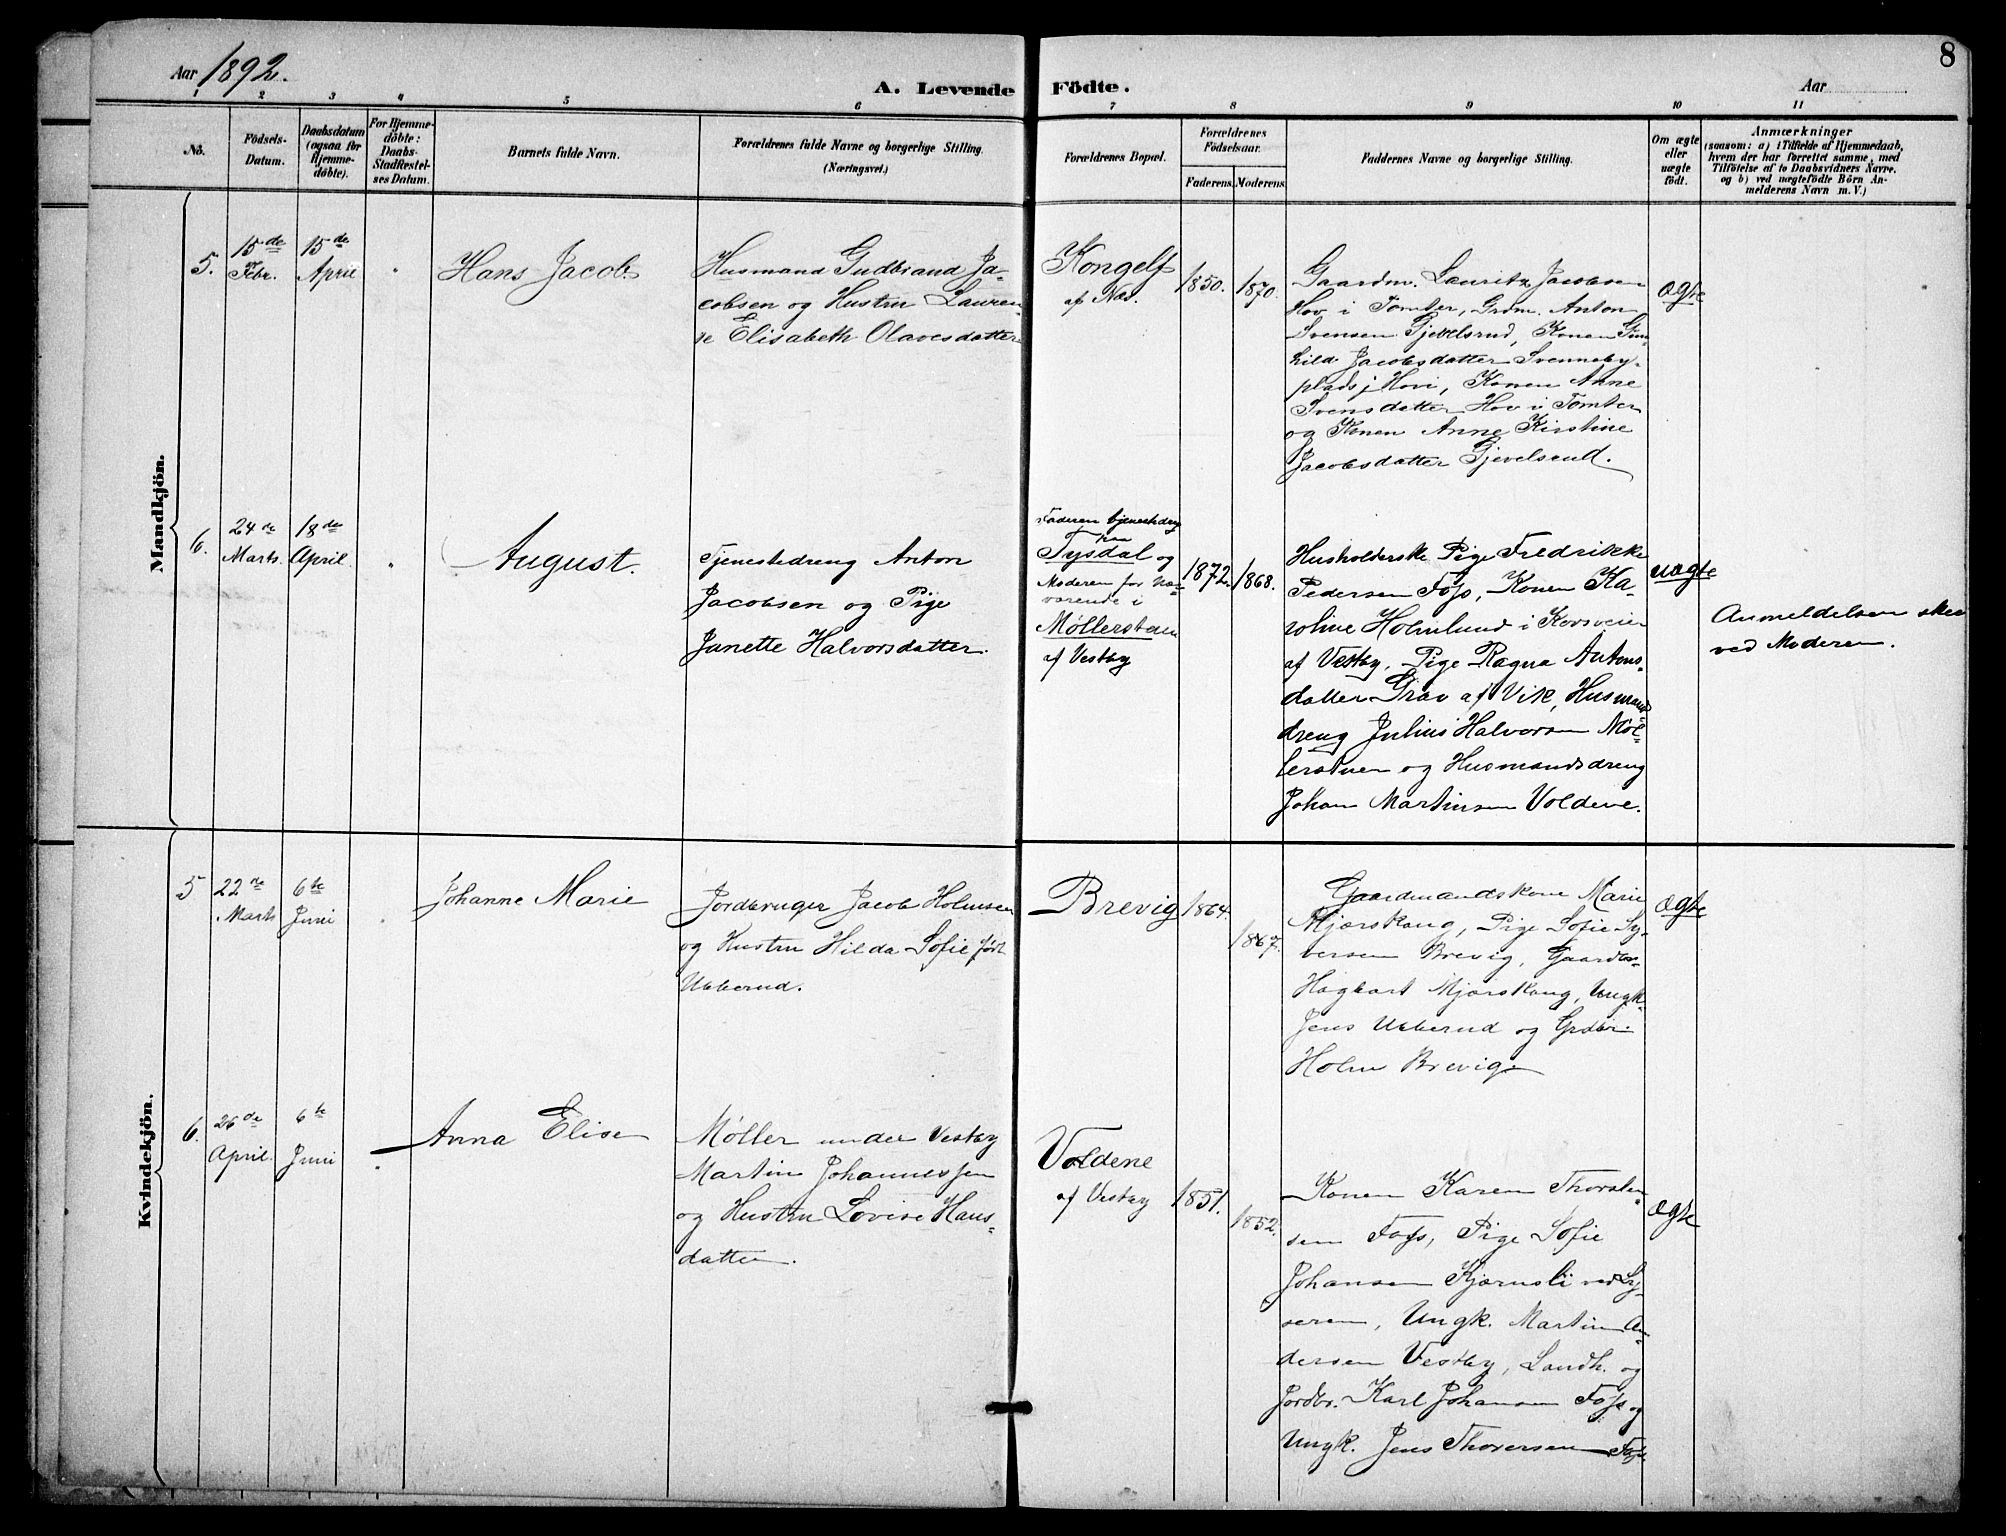 8
Aar 1892.
A. Levende Födte.
Aar
1 2 3 4 5 6 7 8 9 10 11
No.
Födsels-
Datum.
Daabsdatum
(ogsaa for
Hjemme-
döbte).
For Hjemme-
döbte:
Daabs-
Stadfæstel-
ses Datum.
Barnets fulde Navn.
Forældrenes fulde Navne og borgerlige Stilling.
(Næringsvei.)
Forældrenes Bopæl.
Forældrenes
Födselsaar.
Faderens. Moderens.
Faddernes Navne og borgerlige Stilling.
Om ægte
eller
uægte
födt.
Anmærkninger
(saasom: a) i Tilfælde af Hjemmedaab,
hvem der har forrettet samme, med
Tilföielse af to Daabsvidners Navne.
og b) ved uægtefödte Börn An-
melderens Navn m. V.)
Mandkjön.
5.
15de
Febr.
15de
April
"
Hans Jacob
Husmand Gudbrand Ja-
cobsen og Hustru Lauren-
se Elisabeth Olavesdatter
Kongelf
af Næs.
1850.
1870.
Gaardm. Lauritz Jacobsen
Hov i Tomter, Grdm. Anton
Svensen Gjevelsrud, Konen Gun-
hild Jacobsdatter Svenneby-
plads i Hovi, Konen Anne
Svensdatter Hov i Tomter
og Konen Anne Kirstine
Jacobsdatter Gjevelsrud.
ægte
6.
24de
Marts.
18de
April.
"
August.
Tjenestedreng Anton
Jacobsen og Pige
Janette Halvorsdatter.
Faderen tjenestdreng
paa
Tysdal og
Moderen for nær-
værende i
Møllerstuen
af Vestby
1872.
1868.
Husholderske Pige Fredrikke
Pedersen Foss, Konen Ka-
roline Holmlund i Korsveien
af Vestby, Pige Ragna Antons-
datter Grav af Vik, Husmands-
dreng Julius Halvorsen Møl-
lerstuen og Husmandsdreng
Johan Martinsen Voldene.
uægte
Anmeldelsen skee
ved Moderen.
Kvindekjön.
5
22de
Marts
6te
Juni
"
Johanne Marie
Jordbruger Jacob Holmsen
og Hustru Hilda Sofie født
Ubberud.
Brevig
1864.
1867.
Gaardmandskone Marie
Mjærskaug, Pige Sofie Sy-
versen Brevig, Gaardbr.
Hagbart Mjærskaug, Ungk.
Jens Ubberud og Grdbr.
Holm Brevig
ægte
6.
26de
April.
6te
Juni
"
Anna Elise
Møller under Vestby
Martin Johannessen
og Hustru Lovise Hans-
datter.
Voldene
af Vestby
1851.
1852.
Konen Karen Thorsten-
sen Foss, Pige Sofie
Johansen Kjærnsli ved Ly-
seren, Ungk. Martin An-
dersen Vestby, Landh. og
Jordbr. Karl Johansen Foss og
Ungk. Jens Thoversen Foss
ægte